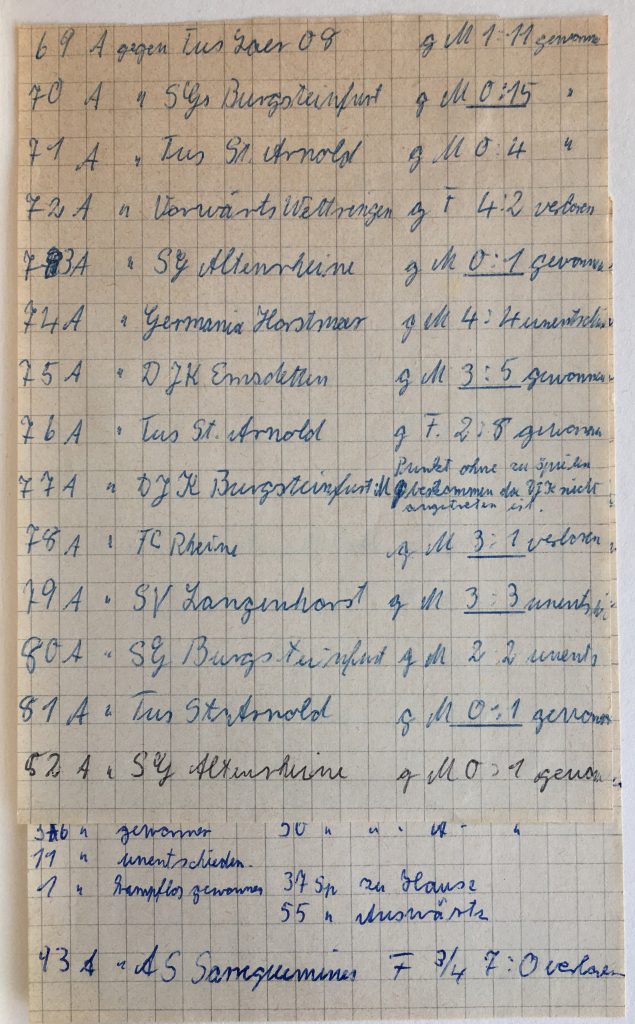 69 A gegen Tus Laer 08 g M 1:11 gewonne
70 A " SGs Burgsteinfurt g M 0:15 "
71 A " Tus St. Arnold g M 0:4 "
72 A " Vorwärts Wettringen g F 4:2 verloren
73 A " SG Altenrheine g M 0:1 gewonnen
74 A " Germania Horstmar g M 4:4 unentschie
75 A " DJK Emsdetten g M 3:5 gewonnen
76 A " Tus St. Arnold g F. 2:8 gewonnen
77 A " DJK Burgsteinfurt M Punkt ohne zu spielen
bekommen da DJK nicht
angetreten ist.
78 A " FC Rheine g M 3:1 verloren
79 A " SV Langenhorst g M 3:3 unents
80 A " SG Burgsteinfurt g M 2:2 unents
81 A " Tus St. Arnold g M 0:1 gewonnen
82 A " SG Altenrheine g M 0:1 gewon
36 " gewonnen 50 " " " A " "
11 " unentschieden.
1 " Kampflos gewonnen 37 Sp zu Hause
55 " Auswärts
93 A " AS Sareguemines F 3/4 7:0 verloren